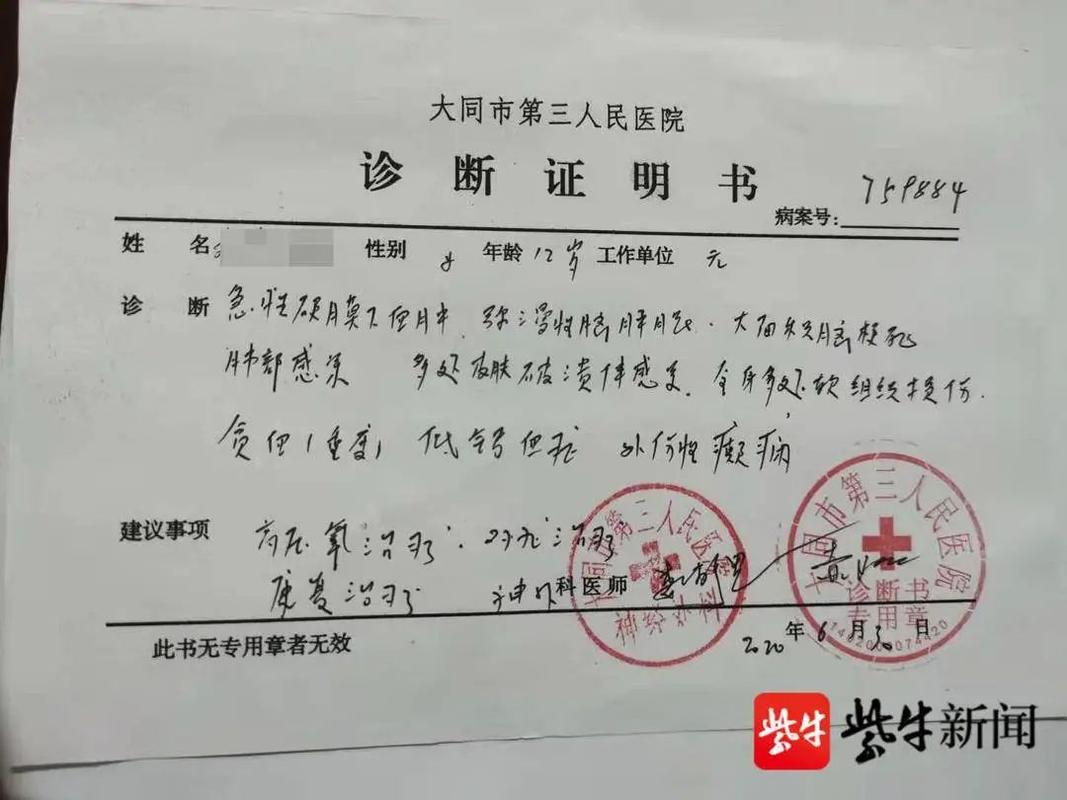 大同市第三人民医院
诊断证明书
病案号: 759884
姓 名 性别 女 年龄 12岁 工作单位 无
诊 断 急性硬膜下血肿. 弥漫性脑肿胀. 大面积脑梗死
肺部感染 多处皮肤破溃伴感染. 全身多处软组织损伤.
贫血(重度) 低钙血症 外伤性癫痫
建议事项 高压氧治疗. 对症治疗
康复治疗 神外科医师
此书无专用章者无效
2020年6月30日
大同市第三人民医院
神经外科
大同市第三人民医院
诊断书
专用章
1402000074420
紫牛 紫牛新闻